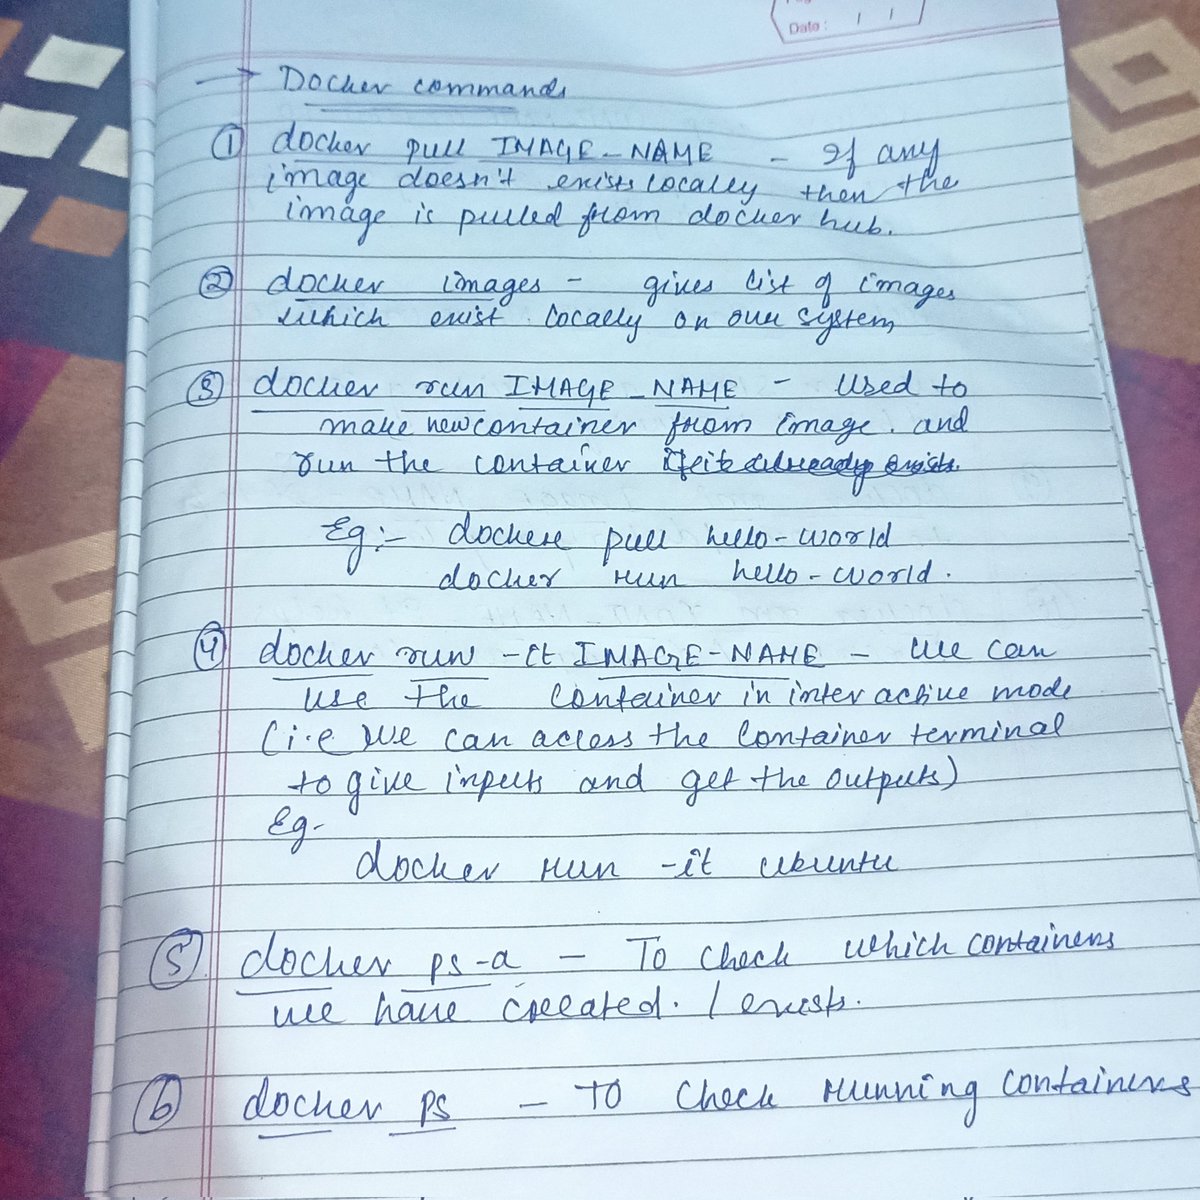 Date: / /
→ Docker commands
① docker pull IMAGE-NAME - If any
image doesn't exists locally then the
image is pulled from docker hub.
② docker images - gives list of images
which exist locally on our system
③ docker run IMAGE_NAME - Used to
make new container from image. and
run the container if it already exists.
Eg:- docker pull hello-world
docker run hello-world.
④ docker run -it IMAGE-NAME - we can
use the container in interactive mode
(i.e we can access the container terminal
to give inputs and get the outputs)
Eg-
docker run -it ubuntu
⑤ docker ps -a - To check which containers
we have created. / exists.
⑥ docker ps - To check running containers